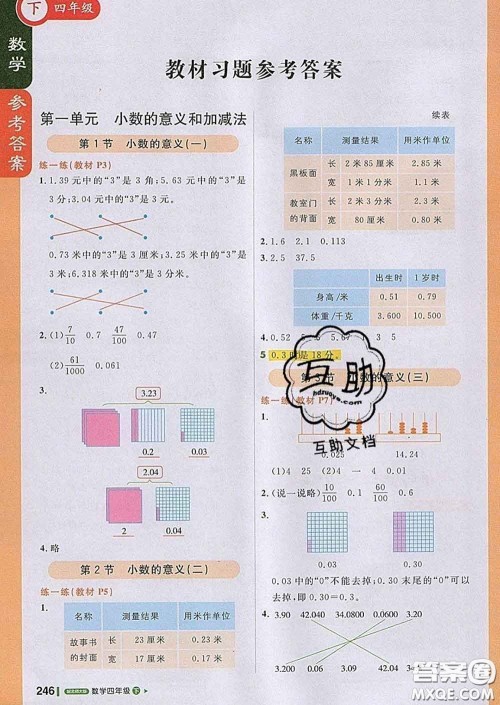 下 四年级
数学
参考答案
教材习题参考答案
第一单元 小数的意义和加减法
第1节 小数的意义(一)
练一练(教材 P3)
1.1.39元中的“3”是3角;5.63元中的“3”是
3分;3.04元中的“3”是3元。
0.73米中的“3”是3厘米;3.25米中的“3”是3
米;6.318米中的“3”是3分米。
2.(1)7/10 0.7 47/100 0.47
(2)61/1000 0.061
3.
3.23
3 0.2 0.03
2.04
2 0.04
4.略
第2节 小数的意义(二)
练一练(教材 P5)
1.
名称 测量结果 用米作单位
故事书的封面 长 23厘米 0.23米
宽 17厘米 0.17米
续表
名称 测量结果 用米作单位
黑板面 长 2米85厘米 2.85米
宽 1米1分米 1.1米
教室门的背面 长 2米3分米 2.3米
宽 80厘米 0.80米
2.1.6 2.1 0.113
3.2.5 37.5
出生时 1岁时
身高/米 0.51 0.79
体重/千克 3.600 10.500
4.0.52
5 0.3时是18分。
小数的意义(三)
练一练(教材 P7)
1.
0.025 14.24
(1)4 25 (2)4
2.(说一说略) 10/100 0.1 60/100 0.6
3.
0.03 0.30
0.03中的“0”不能去掉;0.30末尾的“0”可以去掉,
即0.30=0.3。
4. 3.90 42.040 34.0800 0.0600 3.200
3.200 0.06 42.04 3.9 34.08
互助
hdzuoye.com
互助文档
246 数学四年级 下
答案圈
MXQE.COM